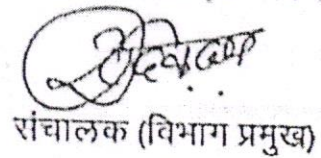 संचालक (विभाग प्रमुख)